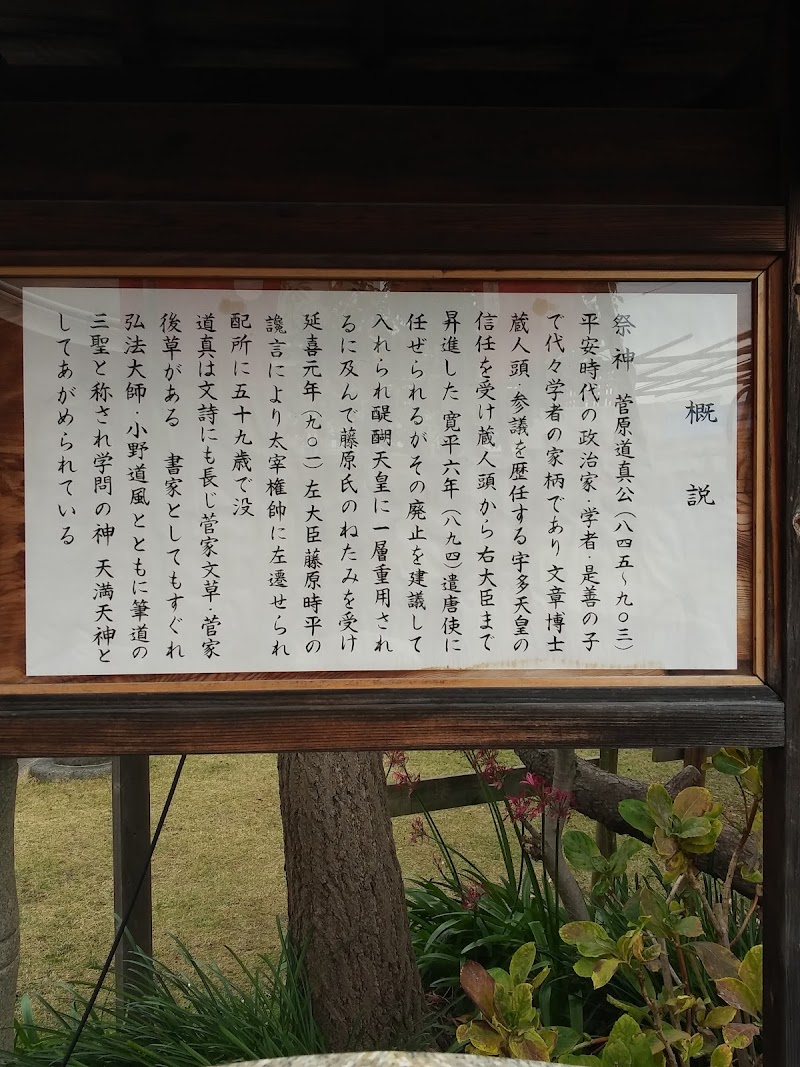 概説
祭神 菅原道真公(八四五~九〇三)
平安時代の政治家・学者・是善の子
で代々学者の家柄であり文章博士
蔵人頭・参議を歴任する宇多天皇の
信任を受け蔵人頭から右大臣まで
昇進した寛平六年(八九四)遣唐使に
任ぜられるがその廃止を建議して
入れられ醍醐天皇に一層重用され
るに及んで藤原氏のねたみを受け
延喜元年(九〇一)左大臣藤原時平の
讒言により太宰権帥に左遷せられ
配所に五十九歳で没
道真は文詩にも長じ菅家文草・菅家
後草がある 書家としてもすぐれ
弘法大師・小野道風とともに筆道の
三聖と称され学問の神 天満天神と
してあがめられている